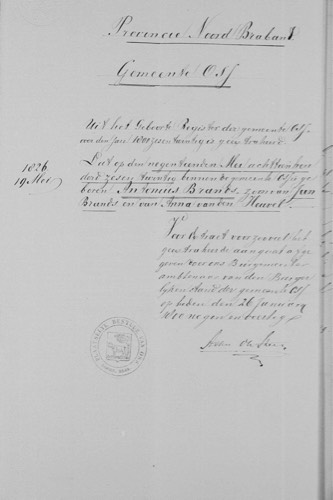 Provincie Noord Brabant
Gemeente Oss
Uit het Geboorte Register der gemeente Oss
over den Jare 1826 zesentwintig is geextraheerd
1826
19 Mei
Dat op den negentienden Mei achttienhon
derd zesen twintig binnen de gemeente Oss is ge
boren Antonius Brands, zoon van Jan
Brands en van Anna van den Heuvel.
Voor extract voor zooveel het
geextraheerde aangaat afge
geven door ons Burgemeester
ambtenaar van den Burger
lijken stand der gemeente Oss
op heden den 26 Januarij
1800 negen en veertig